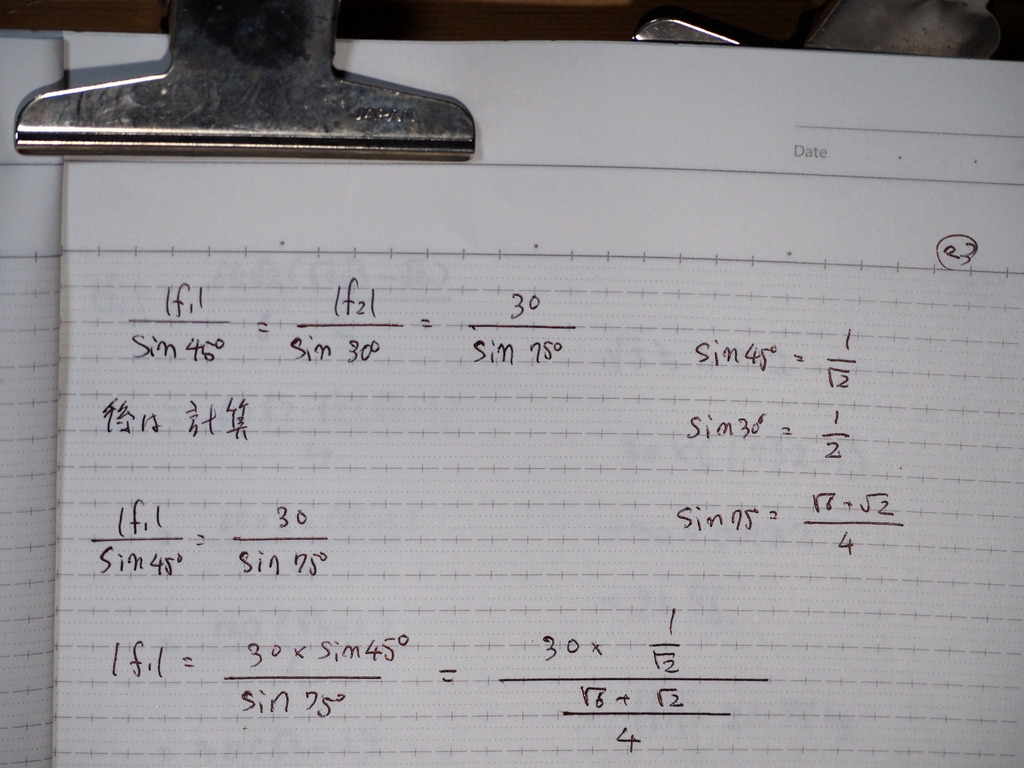 JAPAN
Date
23
|f₁| / sin 45° = |f₂| / sin 30° = 30 / sin 75°
sin 45° = 1 / √2
後は 計算
sin 30° = 1 / 2
|f₁| / sin 45° = 30 / sin 75°
sin 75 = √6 + √2 / 4
|f₁| = 30 × sin 45° / sin 75° = 30 × 1 / √2 / √6 + √2 / 4